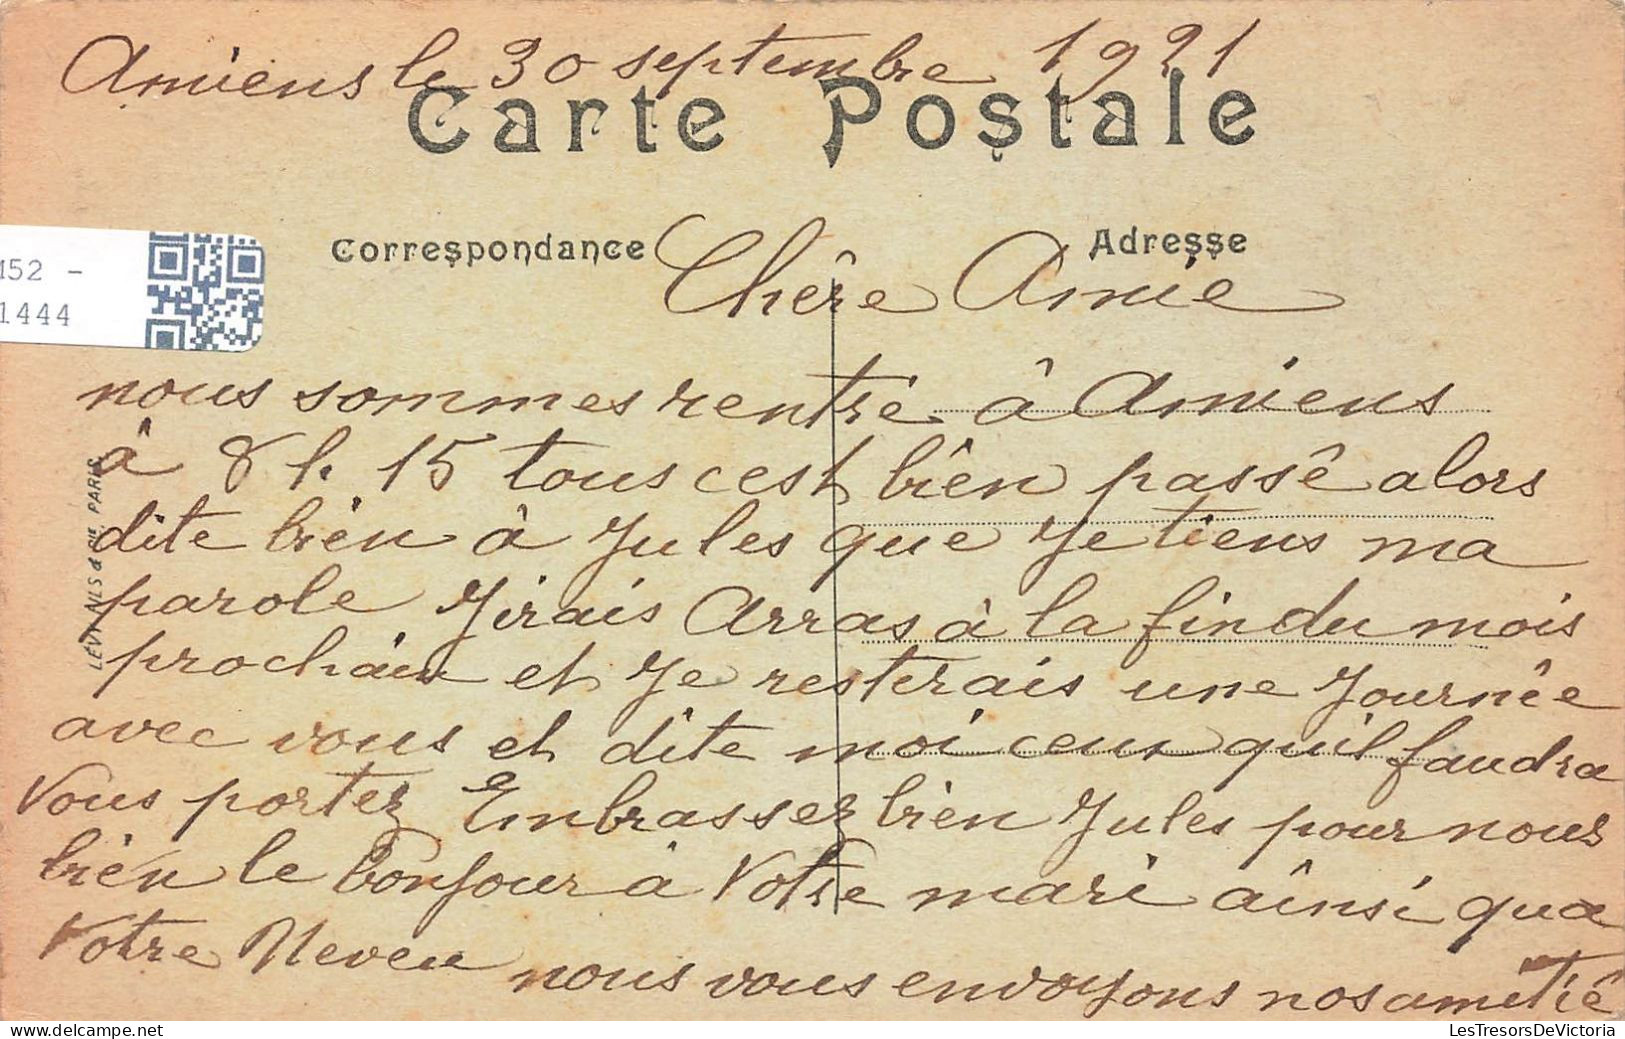 Amiens le 30 septembre 1921
Carte Postale
Correspondance
Adresse
Chêre Amie
M52 -
1444
nous sommes rentré à Amiens
à 8 h. 15 tous cest bien passê alors
dite bien à Jules que Je tiens ma
parole J irais Arras à la fin du mois
prochain et Je resterais une Journêe
avec vous et dite moi ceux quil faudra
Vous portez Embrassez bien Jules pour nous
bien le bonjour à Votre mari ainsi qua
Votre Neveu nous vous envoyons nos amitiê
LEVY FILS & CIE PARIS
LesTresorsDeVictoria
https://www.delcampe.net